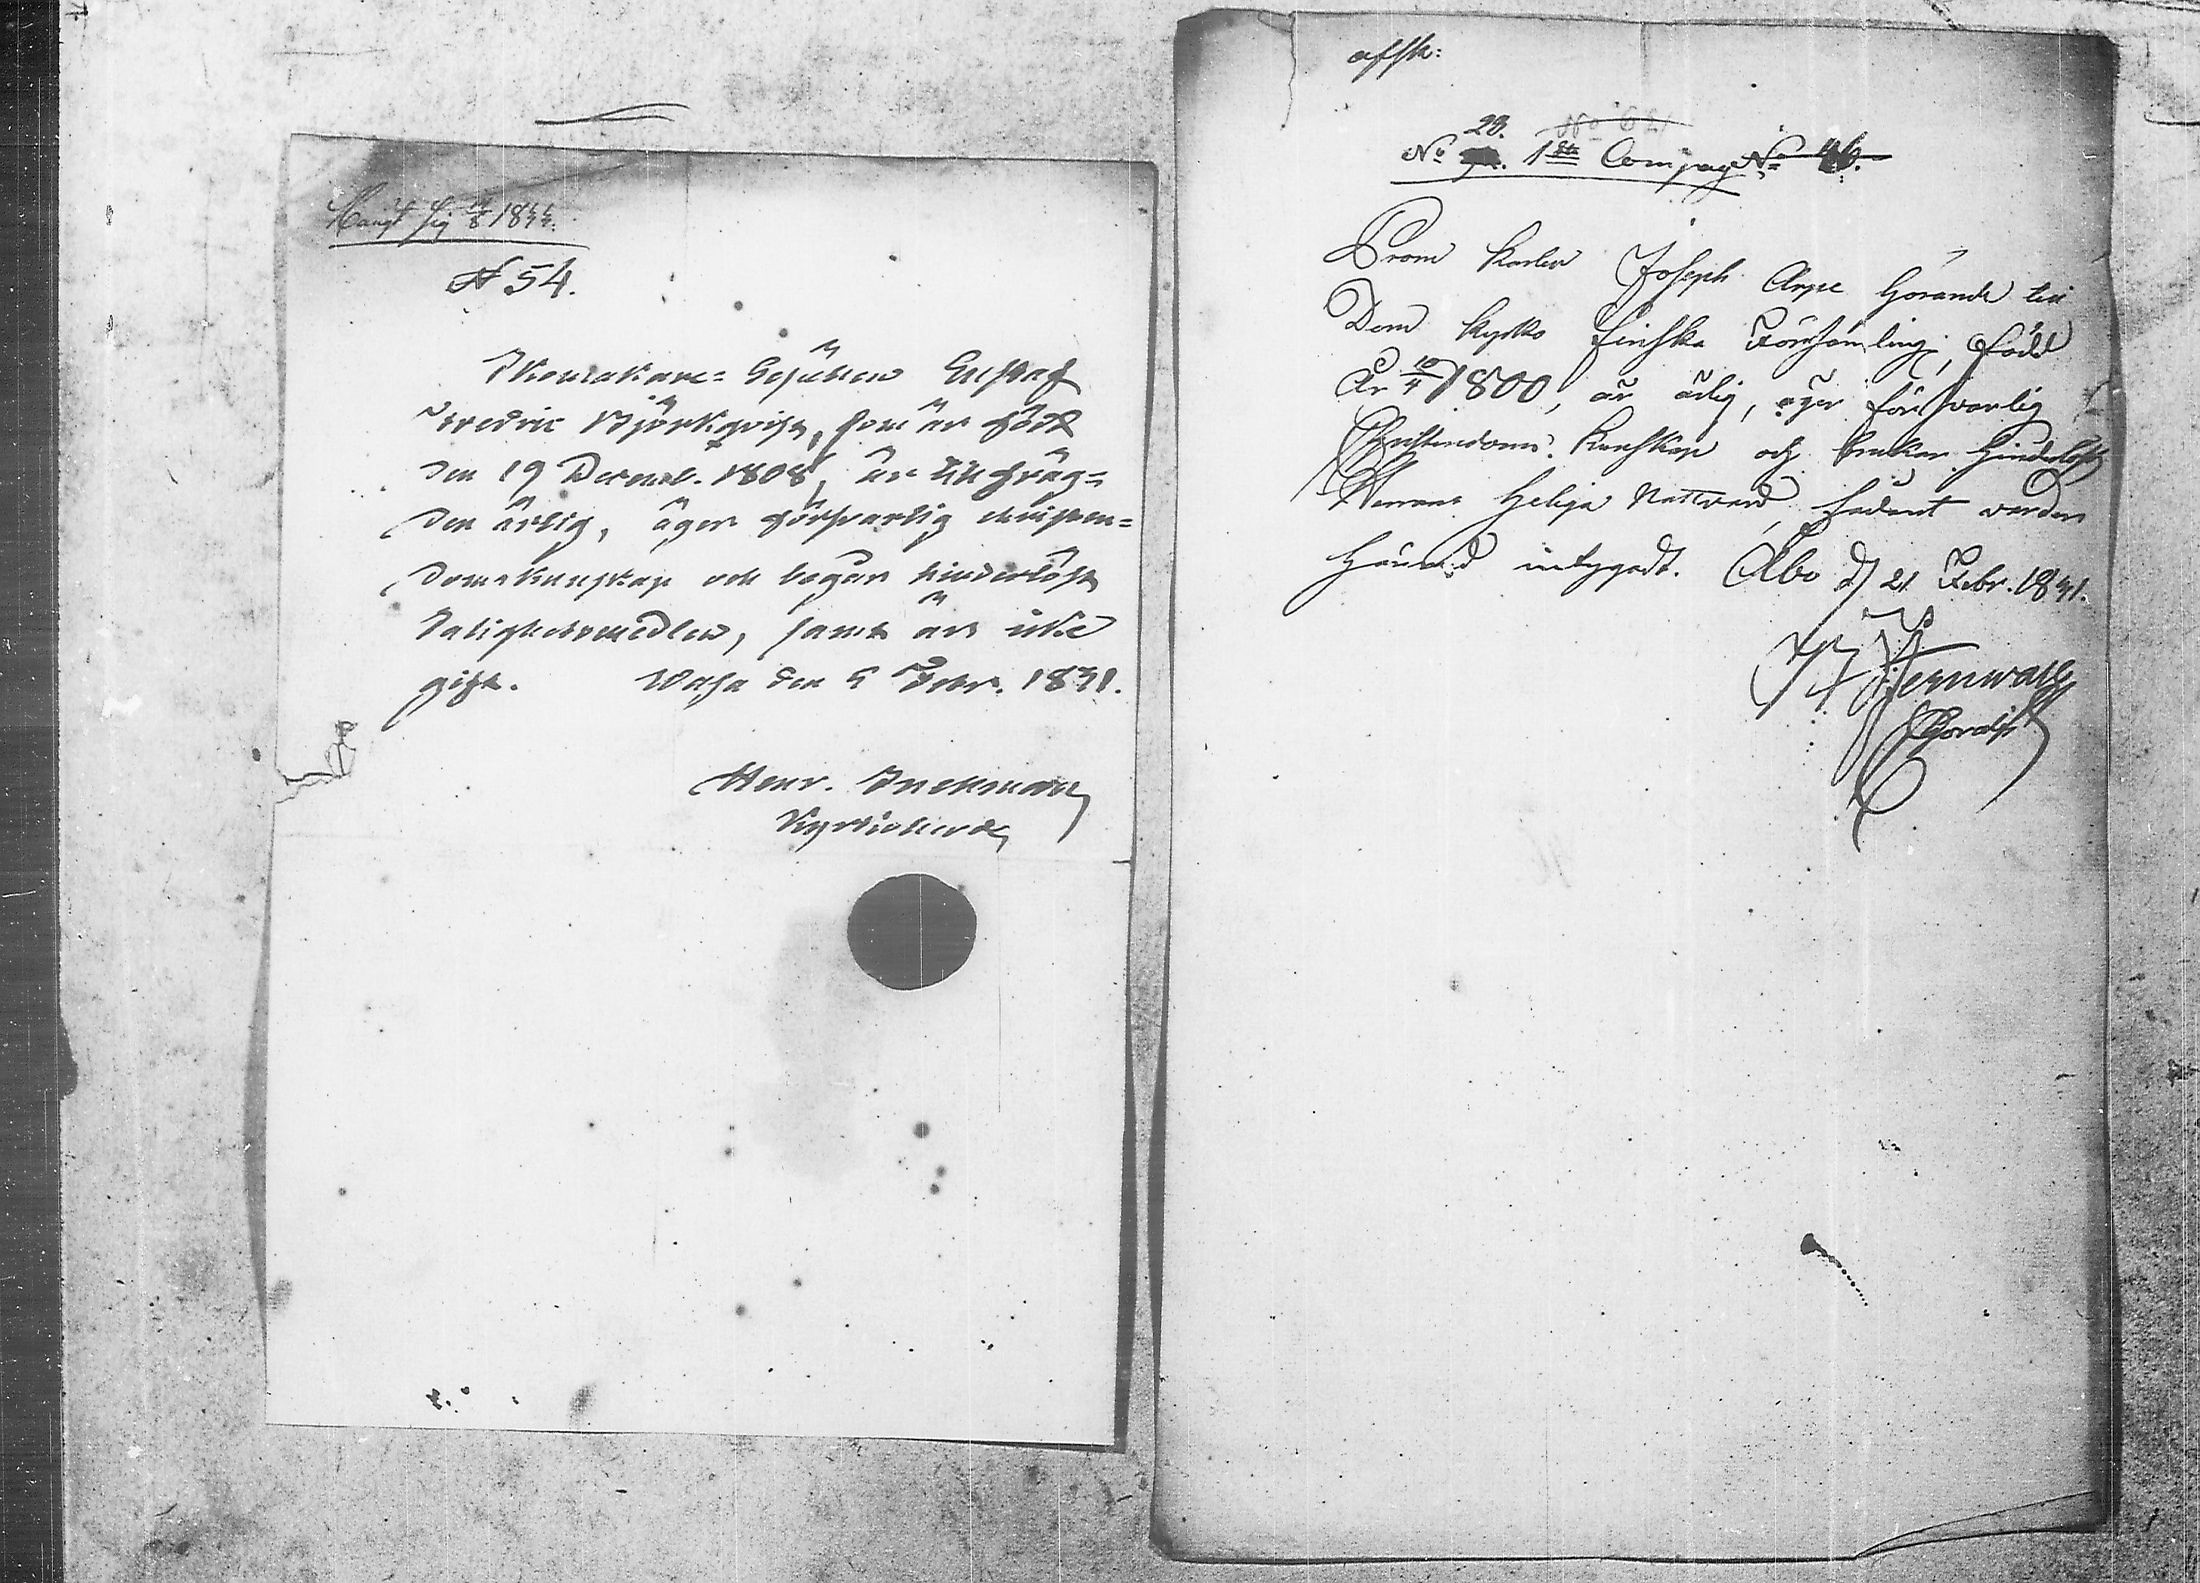 N 54.
Skomakare=Gesällen Gustaf
Fredric Björkqvist, som är född
den 19 Decemb. 1808, är till fräg=
den ärlig, äger försvarlig christen=
domskunskap och begår hinderlöst
Salighetsmedlen, samt är icke
gift. Wasa den 5 Febr. 1831.
Henr. Backman
Kyrkioherde
afsk:
28. No
No 1sta Compag No 46.
Drom karlen Joseph Arpe hörande till
Dom kyrko finska Församling, född
År 10/4 1800, är ärlig, äger försvarlig
Christendoms kunskap och brukar hinderlöst
Herrans heliga Nattvard, sådant warder
härmed intygadt. Åbo d 21 Febr. 1831.
Wernwall